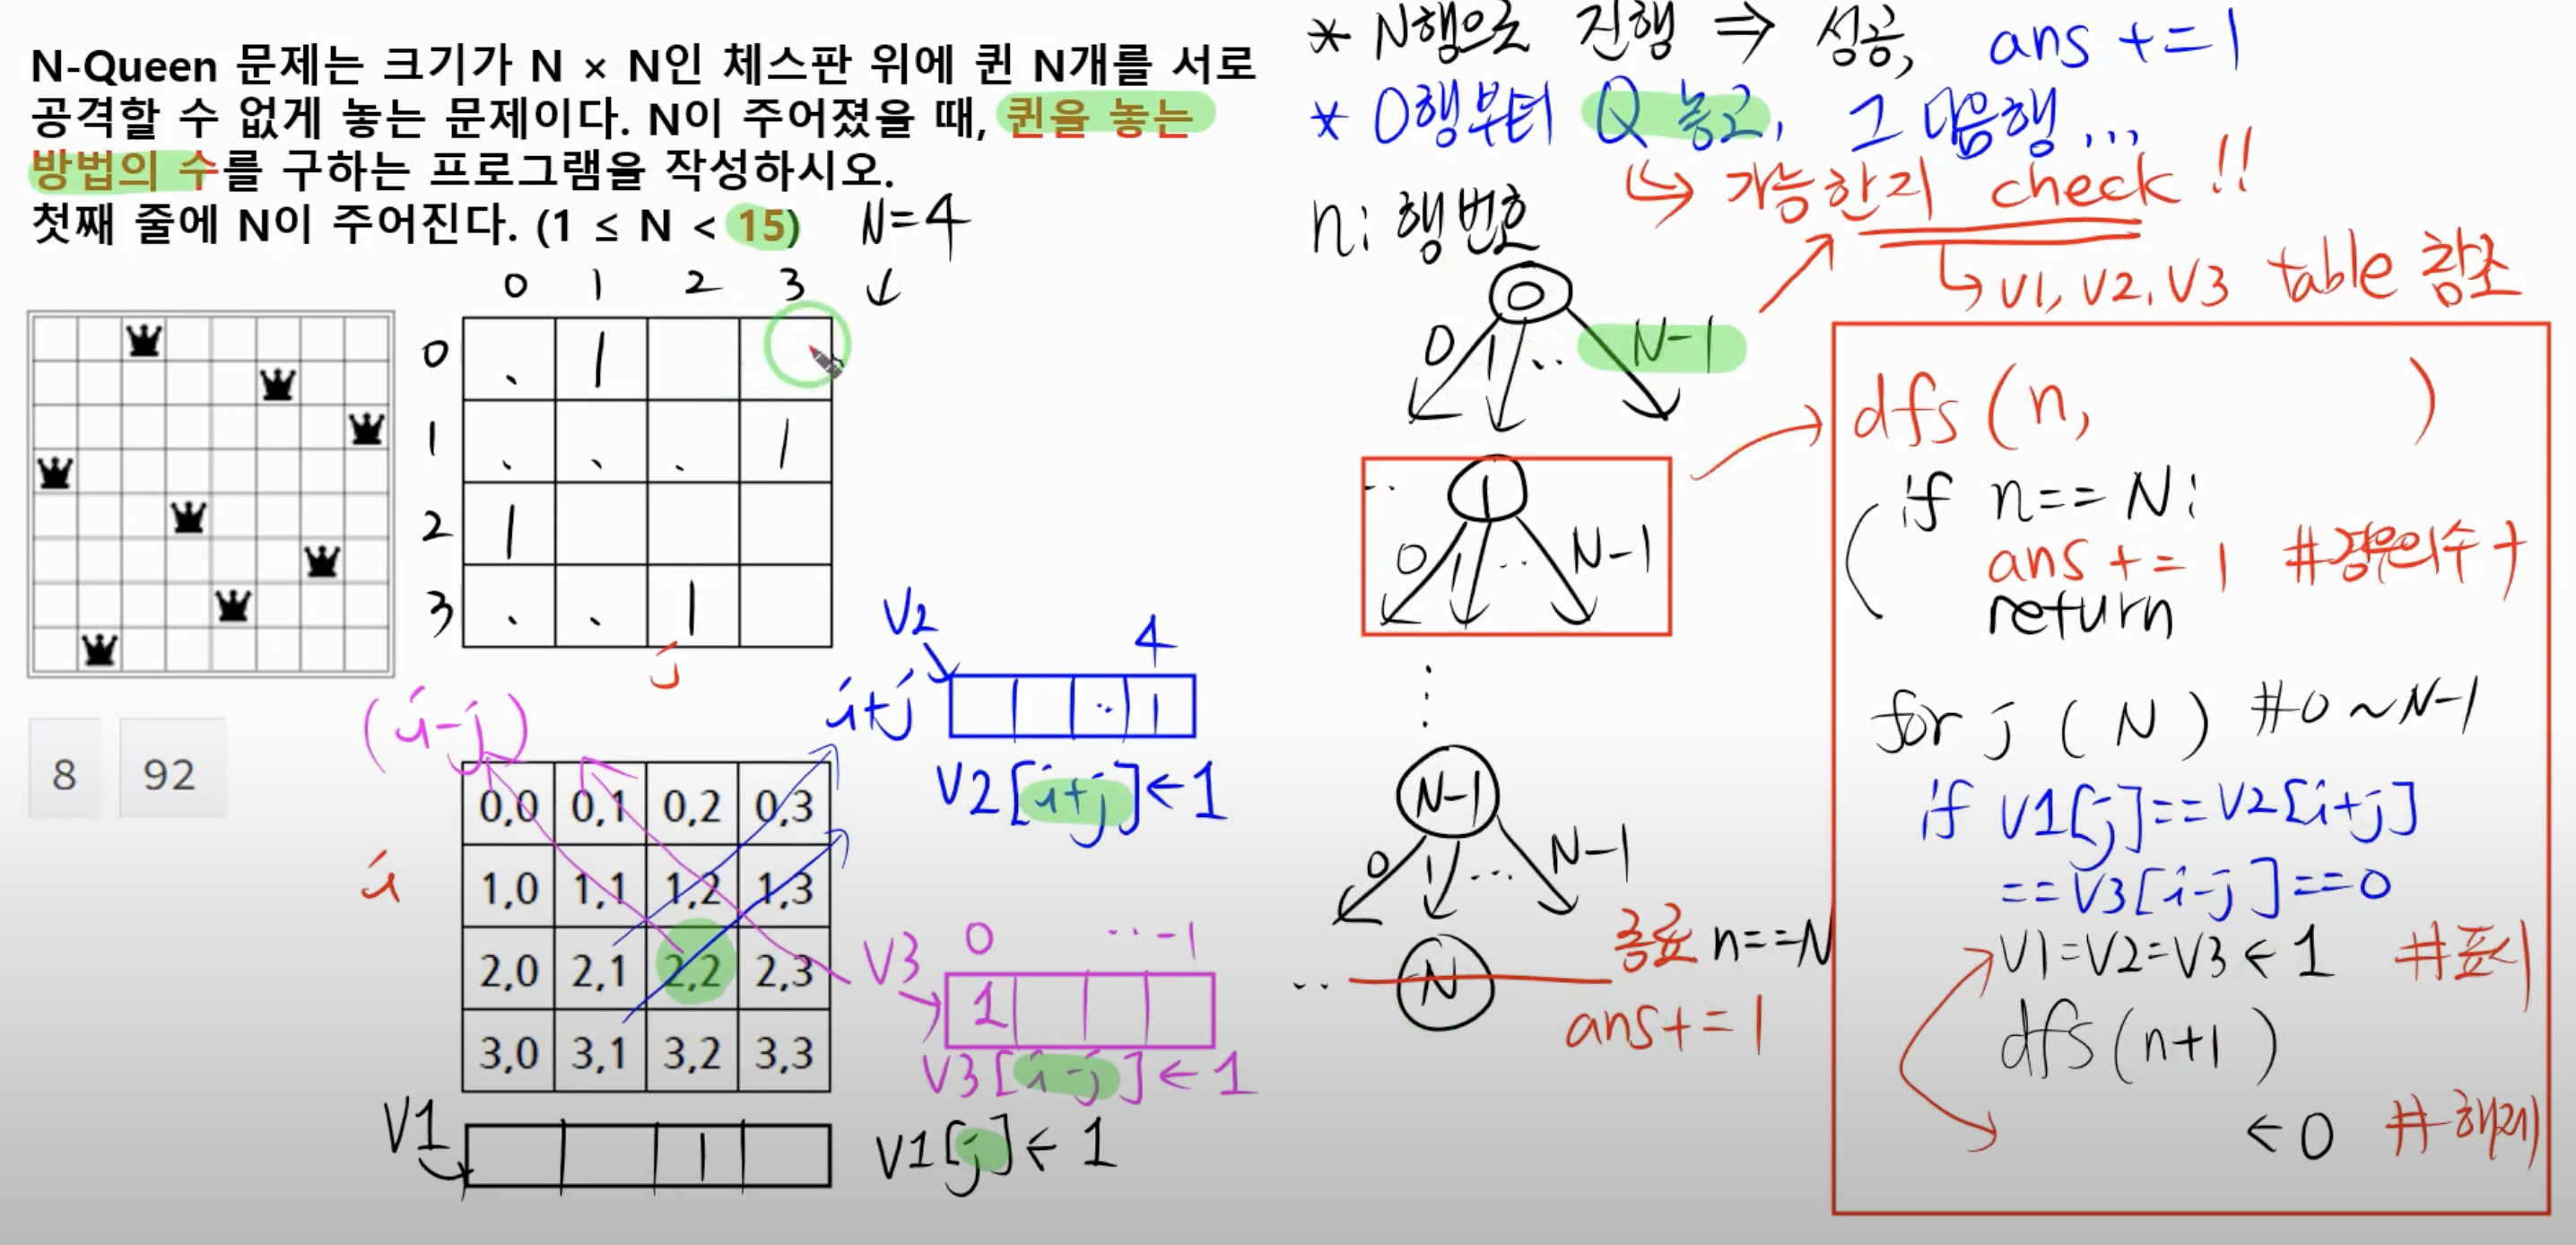 N-Queen 문제는 크기가 N × N인 체스판 위에 퀸 N개를 서로
공격할 수 없게 놓는 문제이다. N이 주어졌을 때, 퀸을 놓는
방법의 수를 구하는 프로그램을 작성하시오.
첫째 줄에 N이 주어진다. (1 ≤ N < 15)
N=4
0 1 2 3
0 1
1 1
2 1
3 1
j
8 92
(i-j)
i+j
V2
4
1
V2[i+j]←1
i
0,0 0,1 0,2 0,3
1,0 1,1 1,2 1,3
2,0 2,1 2,2 2,3
3,0 3,1 3,2 3,3
V3
0 ..-1
1
V3[i-j]←1
V1
1
V1[j]←1
* N행으로 진행 ⇒ 성공, ans += 1
* 0행부터 Q 놓고, 그 다음행...
↳ 가능한지 check !!
↳ V1, V2, V3 table 참조
n: 행번호
0
0 1 .. N-1
1
0 1 .. N-1
N-1
0 1 ... N-1
N
종료 n==N
ans+=1
dfs(n, )
if n==N:
ans += 1 #경우의수 +
return
for j (N) #0~N-1
if V1[j]==V2[i+j]
==V3[i-j]==0
V1=V2=V3←1 #표시
dfs(n+1 )
←0 #해제